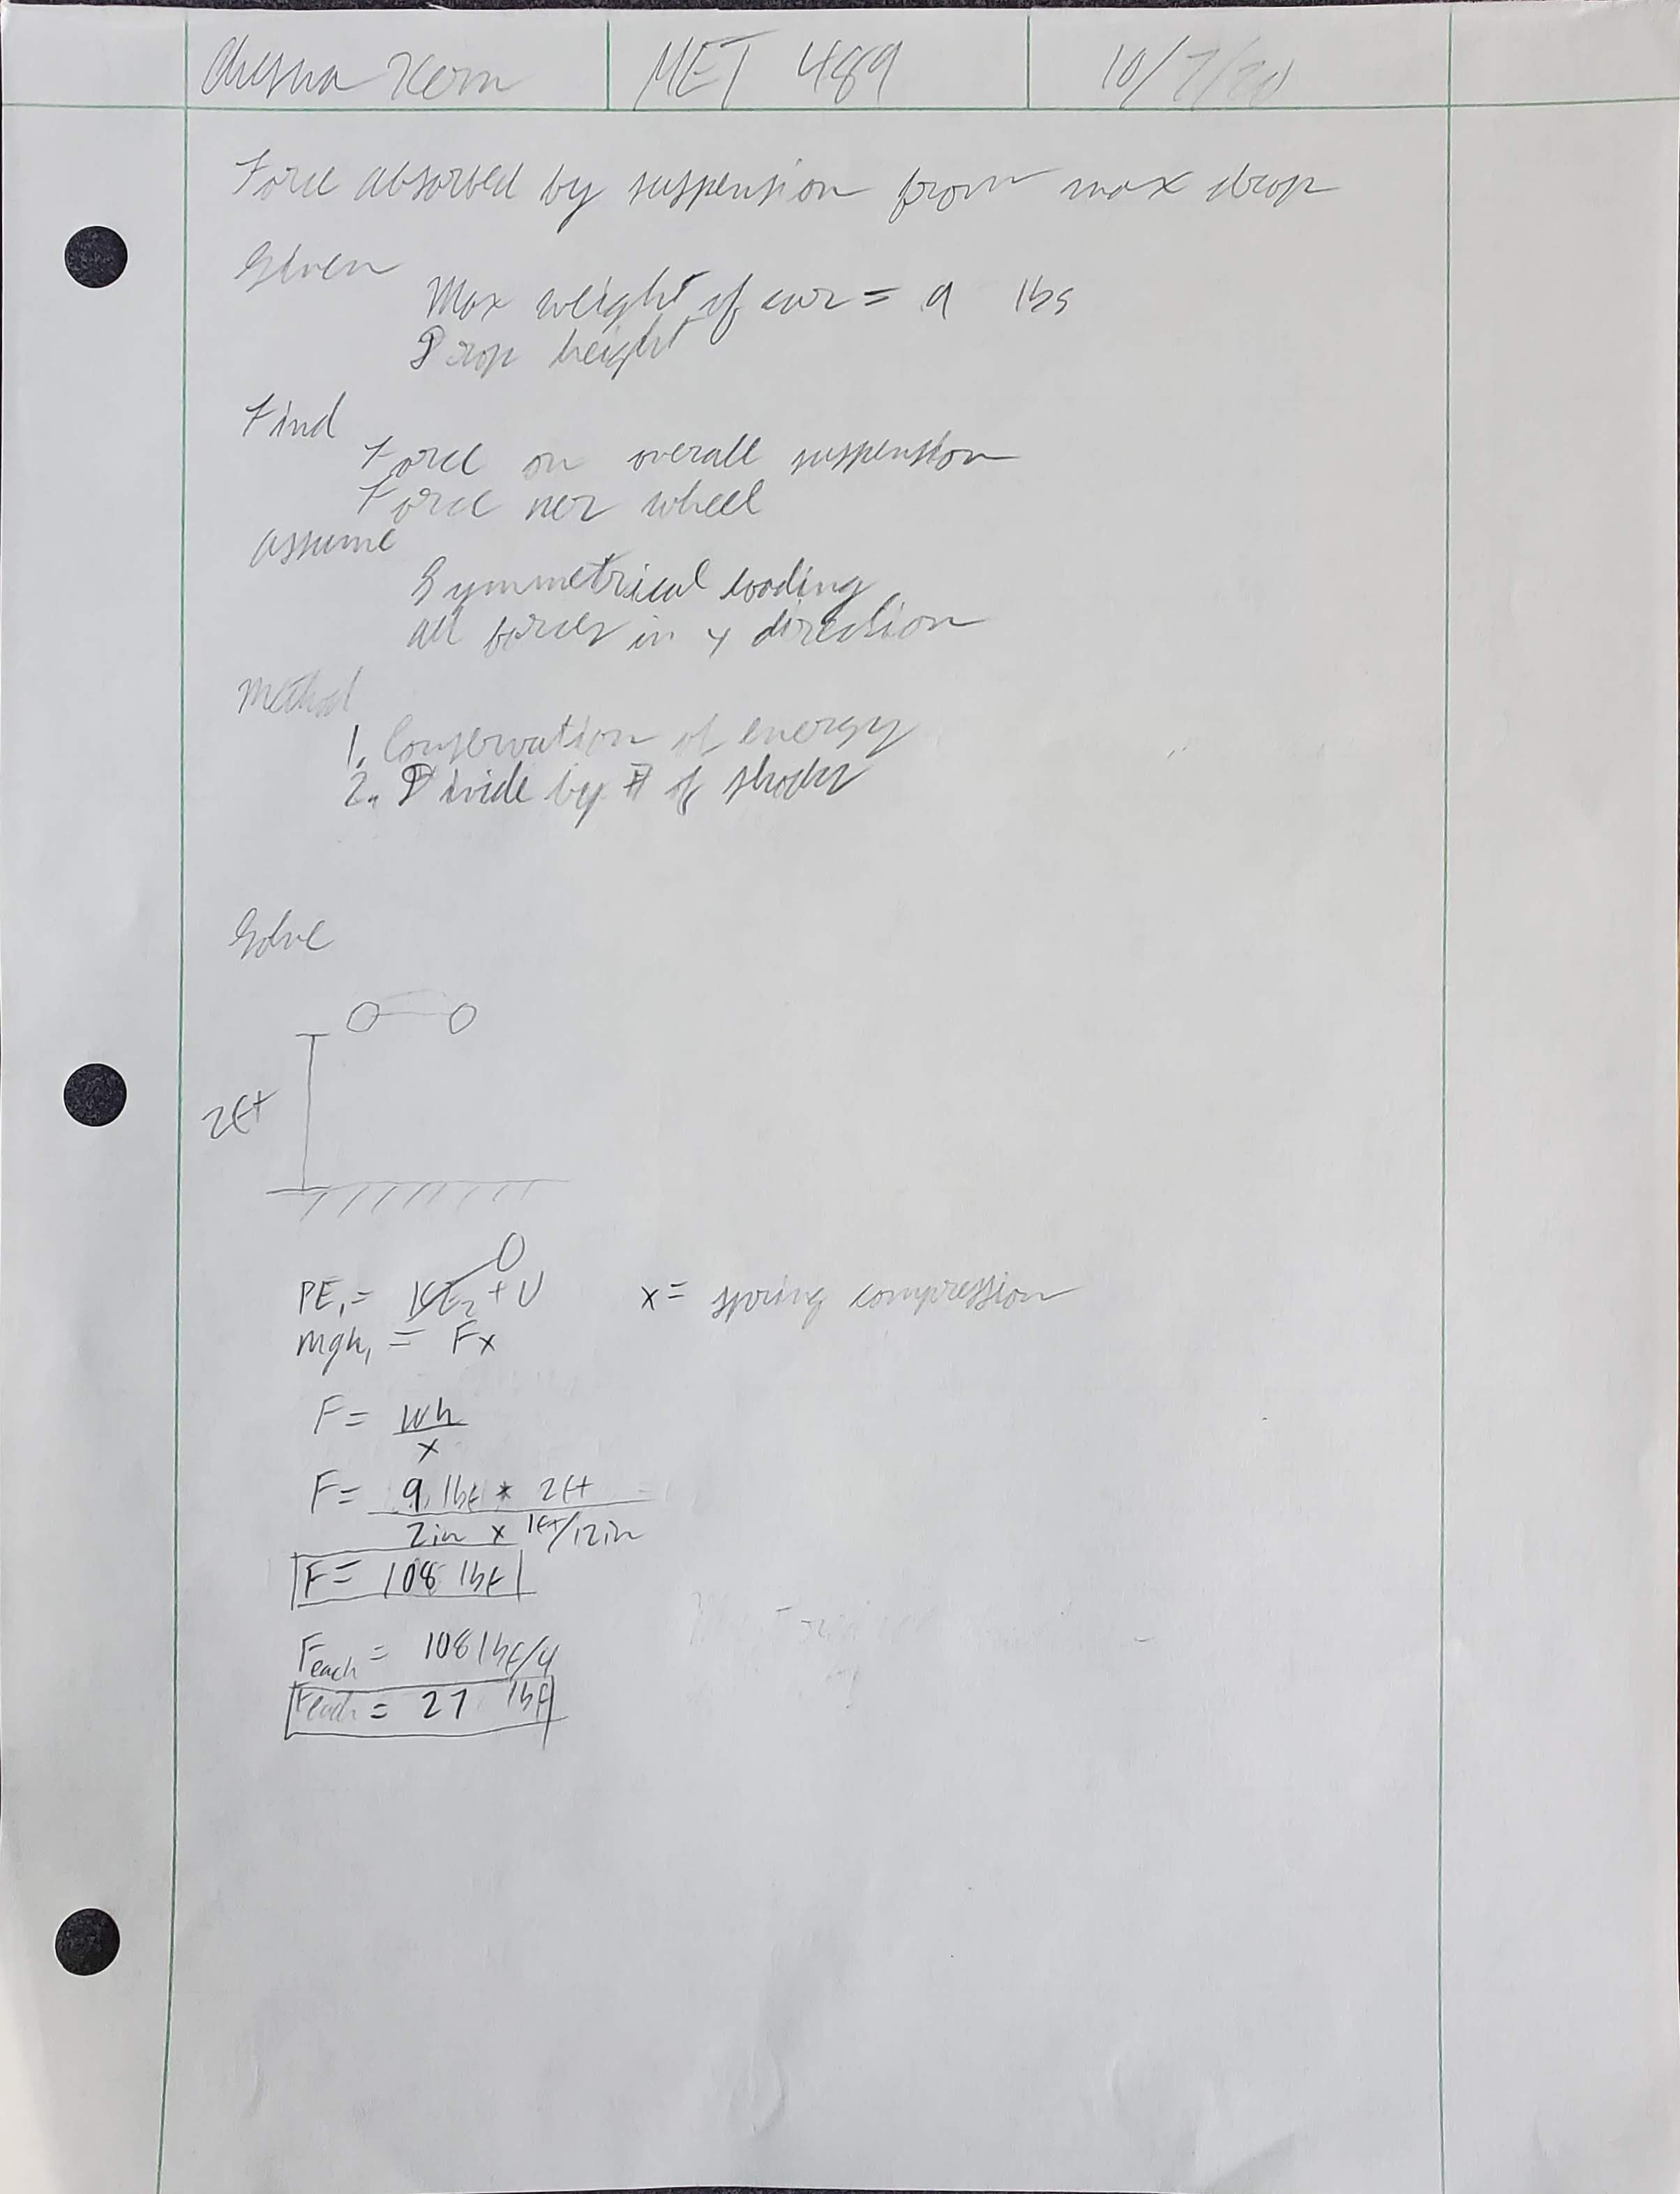 MET 489
10/7/20
Force absorbed by suspension from max drop
Given
Max weight of car = 9 lbs
Drop height
Find
Force on overall suspension
Force per wheel
Assume
Symmetrical loading
all forces in y direction
Method
1. Conservation of energy
2. Divide by # of shocks
Solve
2ft
0
PE₁ = KE₂ + U x = spring compression
mgh₁ = Fx
F = Wh/x
F = 9 lbf * 2ft
2in x 1ft/12in
F = 108 lbf
Feach = 108 lbf/4
Feach = 27 lbf